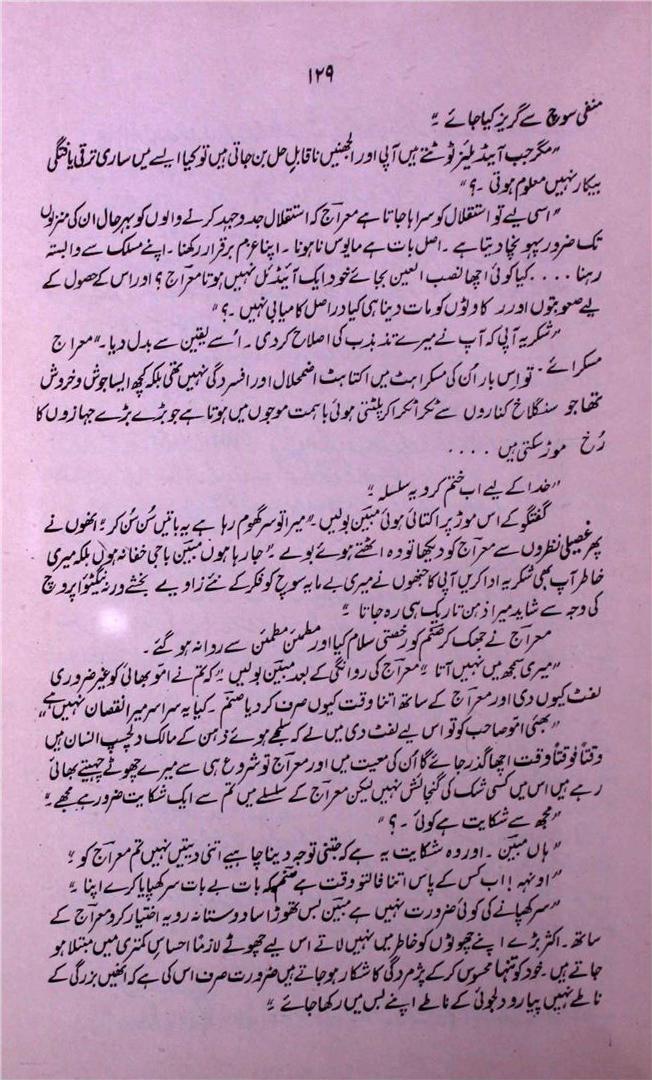 ۱۲۹
منفی سوچ سے گریز کیا جائے ۔"
"مگر جب آئیڈیلز ٹوٹتے ہیں آپی اور الجھنیں ناقابلِ حل بن جاتی ہیں تو کیا ایسے میں ساری ترقی یافتگی
بیکار نہیں معلوم ہوتی ۔؟"
"اسی لیے تو استقلال کو سراہا جاتا ہے معراج کہ استقلال جدوجہد کرنے والوں کو بہرحال ان کی منزلوں
تک ضرور پہونچا دیتا ہے ۔ اصل بات ہے مایوس نا ہونا ۔ اپنا عزم برقرار رکھنا ۔ اپنے مسلک سے وابستہ
رہنا .... کیا کوئی اچھا نصب العین بجائے خود ایک آئیڈئل نہیں ہوتا معراج ؟ اور اس کے حصول کے
لیے صعوبتوں اور رکاوٹوں کو مات دینا ہی کیا دراصل کامیابی نہیں ۔؟"
"شکریہ آپی کہ آپ نے میرے تذبذب کی اصلاح کر دی ۔ اُسے یقین سے بدل دیا ۔" معراج
مسکرائے ۔ تو اِس بار اُن کی مسکراہٹ میں اکتاہٹ اضمحلال اور افسردگی نہیں تھی بلکہ کچھ ایسا جوش و خروش
تھا جو سنگلاخ کناروں سے ٹکرا ٹکرا کر پلٹتی ہوئی باہمت موجوں میں ہوتا ہے جو بڑے بڑے جہازوں کا
رُخ موڑ سکتی ہیں ....
"خدا کے لیے اب ختم کر دو یہ سلسلہ ۔"
گفتگو کے اس موڑ پر اکتائی ہوئی مبین بولیں ۔ "میرا تو سر گھوم رہا ہے یہ باتیں سُن سُن کر" انھوں نے
پھر غصیلی نظروں سے معراج کو دیکھا تو وہ اٹھتے ہوئے بولے ۔ "جا رہا ہوں مبین باجی خفا نہ ہوں بلکہ میری
خاطر آپ بھی شکریہ ادا کریں آپی کا جنھوں نے میری بے مایہ سوچ کو فکر کے نئے زاویے بخشے ورنہ نیگیٹو اپروچ
کی وجہ سے شاید میرا ذہن تاریک ہی رہ جاتا ۔"
معراج نے جھک کر صنم کو رخصتی سلام کیا اور مطمئن مطمئن سے روانہ ہو گئے ۔
"میری سمجھ میں نہیں آتا" معراج کی روانگی کے بعد مبین بولیں "کہ تم نے امّو بھائی کو غیر ضروری
لفٹ کیوں دی اور معراج کے ساتھ اتنا وقت کیوں صرف کر دیا صنم ۔ کیا یہ سراسر میرا نقصان نہیں ہے"
"بھئی امّو صاحب کو تو اس لیے لفٹ دی میں نے کہ سلجھے ہوئے ذہن کے مالک دلچسپ انسان ہیں
وقتاً فوقتاً وقت اچھا گذر جائے گا اُن کی معیت میں اور معراج تو شروع ہی سے میرے چھوٹے چہیتے بھائی
رہے ہیں اس میں کسی شک کی گنجائش نہیں لیکن معراج کے سلسلے میں تم سے ایک شکایت ضرور ہے مجھے ۔"
"مجھ سے شکایت ہے کوئی ۔؟"
"ہاں مبین ۔ اور وہ شکایت یہ ہے کہ جتنی توجہ دینا چاہیے اتنی دیتیں نہیں تم معراج کو ۔"
"اونہہ ! اب کس کے پاس اتنا فالتو وقت ہے صنم کہ بات بے بات سر کھپایا کرے اپنا ۔"
"سر کھپانے کی کوئی ضرورت نہیں ہے مبین بس تھوڑا سا دوستانہ رویہ اختیار کرو معراج کے
ساتھ ۔ اکثر بڑے اپنے چھوٹوں کو خاطر میں نہیں لاتے اس لیے چھوٹے لازماً احساسِ کمتری میں مبتلا ہو
جاتے ہیں ۔ خود کو تنہا محسوس کر کے پژمردگی کا شکار ہو جاتے ہیں ضرورت صرف اس کی ہے کہ انھیں بزرگی کے
ناطے نہیں پیار و دلجوئی کے ناطے اپنے بس میں رکھا جائے ۔"